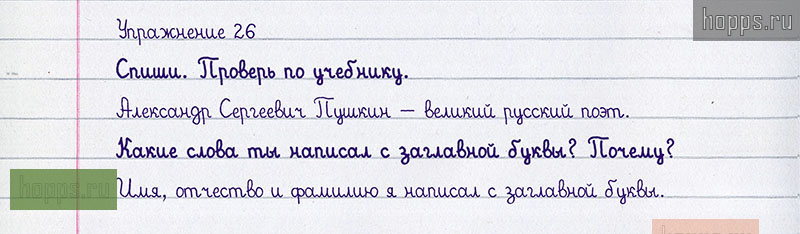 hopps.ru
Упражнение 26
Спиши. Проверь по учебнику.
Александр Сергеевич Пушкин — великий русский поэт.
Какие слова ты написал с заглавной буквы? Почему?
hopps.ru
Имя, отчество и фамилию я написал с заглавной буквы.